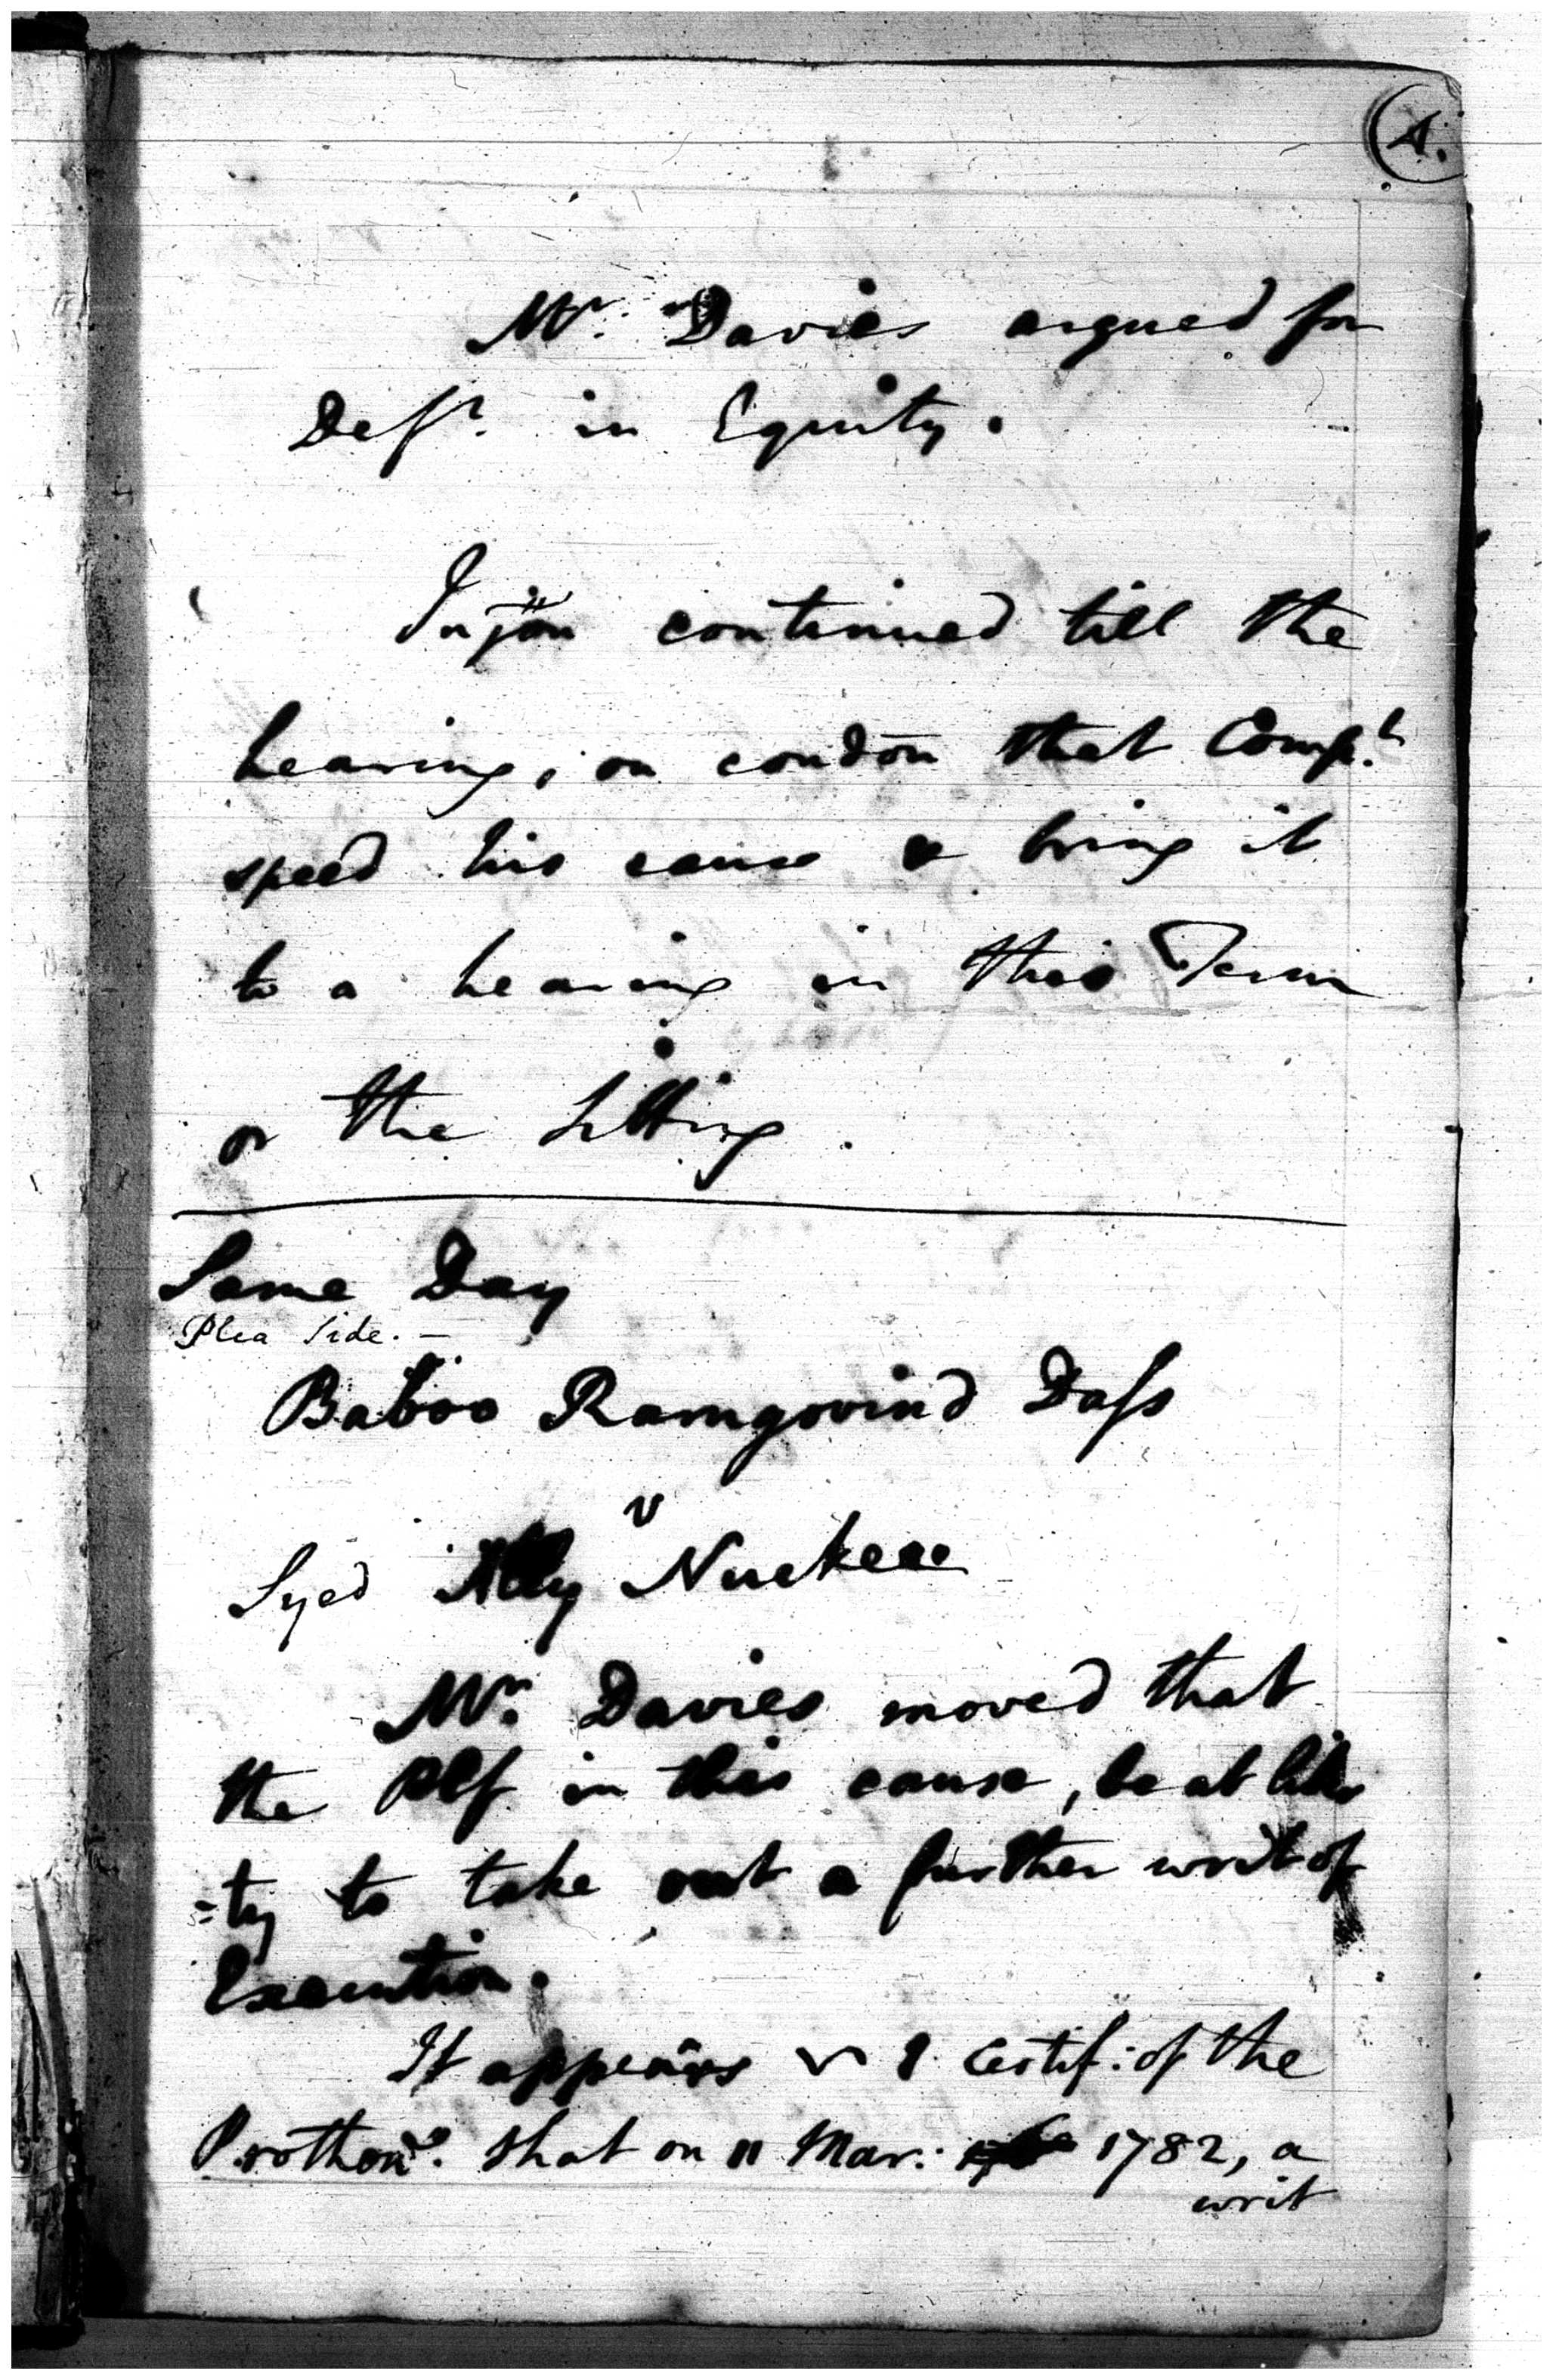 4.
Mr. Davies argued for
Deft. in Equity.
Injōn continued till the
hearing, on condōn that Compt.
speed his cause & bring it
to a hearing in this Term
or the Sitting.
Same Day
Plea Side. —
Baboo Ramgovind Dass
v
Syed Ally Nuckee
Mr. Davies moved that
the Plf in this cause, be at liber
=ty to take out a further writ of
Execution.
It appears certif: of the
Prothon. that on 11 Mar: 1782, a
writ